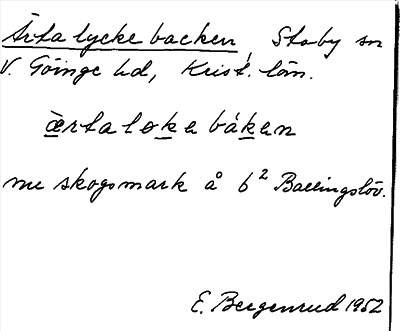 Ärtalyckebacken, Stoby sn
V. Göinge hd, Krist. län.
ærtalokebákен
nu skogsmark å 6² Ballingslöv.
E. Bergenrud 1952